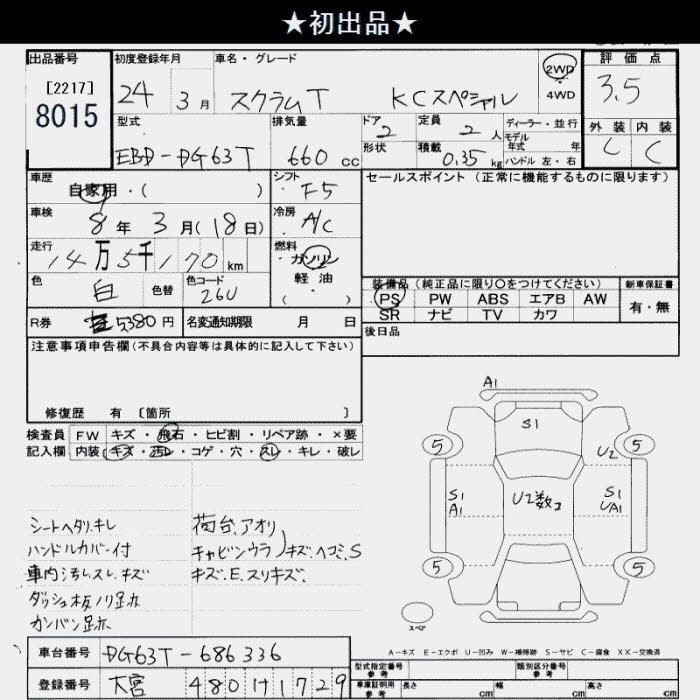 ★初出品★
出品番号
[2217]
8015
初度登録年月
24年 3月
車名・グレード
スクラムT KCスペシャル
2WD
4WD
評価点
3.5
外装 内装
C C
型式
EBD-DG63T
排気量
660 cc
ドア
2
形状
定員
2人
積載
0.35 kg
ディーラー・並行
モデル
年式 年
ハンドル 左・右
車歴
自家用・( )
シフト
F5
セールスポイント(正常に機能するものに限ります)
車検
8年 3月(18日)
冷房
A/C
走行
14万5千170 km
燃料
ガソリン
軽油
( )
色
白
色替
色コード
26U
装備品(純正品に限り○をつけてください)
PS PW ABS エアB AW
SR ナビ TV カワ
新車保証書
有・無
R券
5380円
名変通知期限 月 日
後日品
注意事項申告欄(不具合内容等は具体的に記入して下さい)
修復歴 有 〔箇所 〕
検査員 FW キズ・飛石・ヒビ割・リペア跡・×要
記入欄 内装(キズ・汚レ・コゲ・穴・スレ・キレ・破レ
シートヘタリ.キレ
ハンドルカバー付
車内汚レスレ.キズ
ダッシュ板ノリ跡
カンバン跡
荷台.アオリ
キャビンウラ)キズ.ヘコミ.S
キズ.E.スリキズ.
A1
S1
5 5
U2
S1
A1
U2数コ
S1
UA1
5 5
スペア
A-キズ E-エクボ U-凹み W-補修跡 S-サビ C-腐食 XX-交換済
車台番号
DG63T-686336
登録番号
大宮 480 け 1729
型式指定番号
参考
類別区分番号
参考
車庫証明用
参考
長さ cm 幅 cm 高さ cm